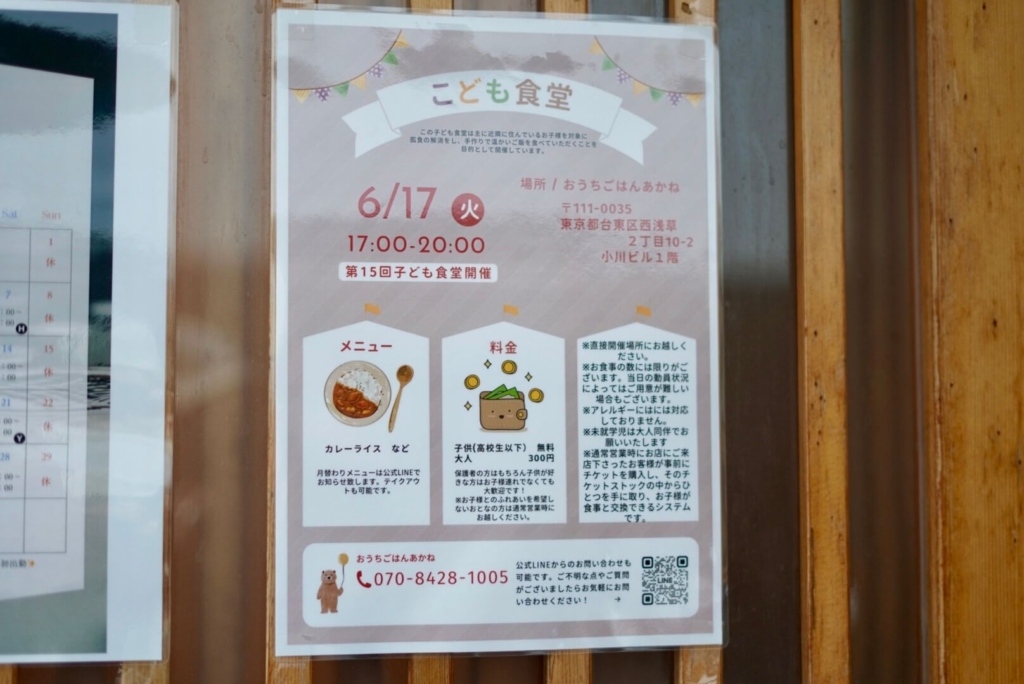 Sat Sun
1
休
7 8
:00~ 休
:00 H
14 15
:00~ 休
:00
21 22
:00~ 休
:00 Y
28 29
休
こども食堂
この子ども食堂は主に近隣に住んでいるお子様を対象に
孤食の解消をし、手作りで温かいご飯を食べていただくことを
目的として開催しています。
6/17 火
17:00-20:00
第15回子ども食堂開催
場所 / おうちごはんあかね
〒111-0035
東京都台東区西浅草
2丁目10-2
小川ビル1階
メニュー
カレーライス など
月替わりメニューは公式LINEで
お知らせ致します。テイクアウ
トも可能です。
料金
子供(高校生以下) 無料
大人 300円
保護者の方はもちろん子供が好
きな方はお子様連れでなくても
大歓迎です！
※お子様とのふれあいを希望し
ないおとなの方は通常営業時に
お越しください。
※直接開催場所にお越しく
ださい。
※お食事の数には限りがご
ざいます。当日の動員状況
によってはご用意が難しい
場合もございます。
※アレルギーにはには対応
しておりません。
※未就学児は大人同伴でお
願いいたします
※通常営業時にお店にご来
店下さったお客様が事前に
チケットを購入し、そのチ
ケットストックの中からひ
とつを手に取り、お子様が
食事と交換できるシステム
です。
おうちごはんあかね
070-8428-1005
公式LINEからのお問い合わせも
可能です。ご不明な点やご質問
がございましたらお気軽にお問
い合わせください！ →
LINE